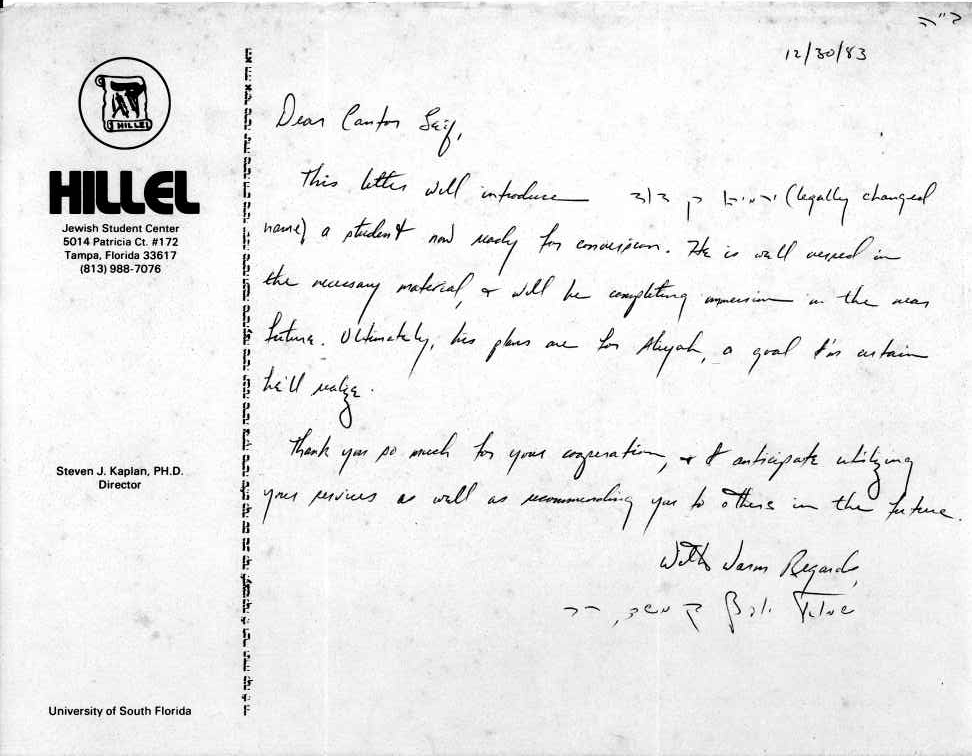 ב"ה
12/30/83
HILLEL
HILLEL
Jewish Student Center
5014 Patricia Ct. #172
Tampa, Florida 33617
(813) 988-7076
Steven J. Kaplan, PH.D.
Director
University of South Florida
Dear Cantor
This letter will introduce (legally changed
name) a student now ready for conversion. He is well versed in
the necessary material, & will be completing immersion in the near
future. Ultimately, his plans are for Aliyah, a goal I'm certain
he'll realize.
Thank you so much for your cooperation, & I anticipate utilizing
your services as well as recommending you to others in the future.
With Warm Regards,